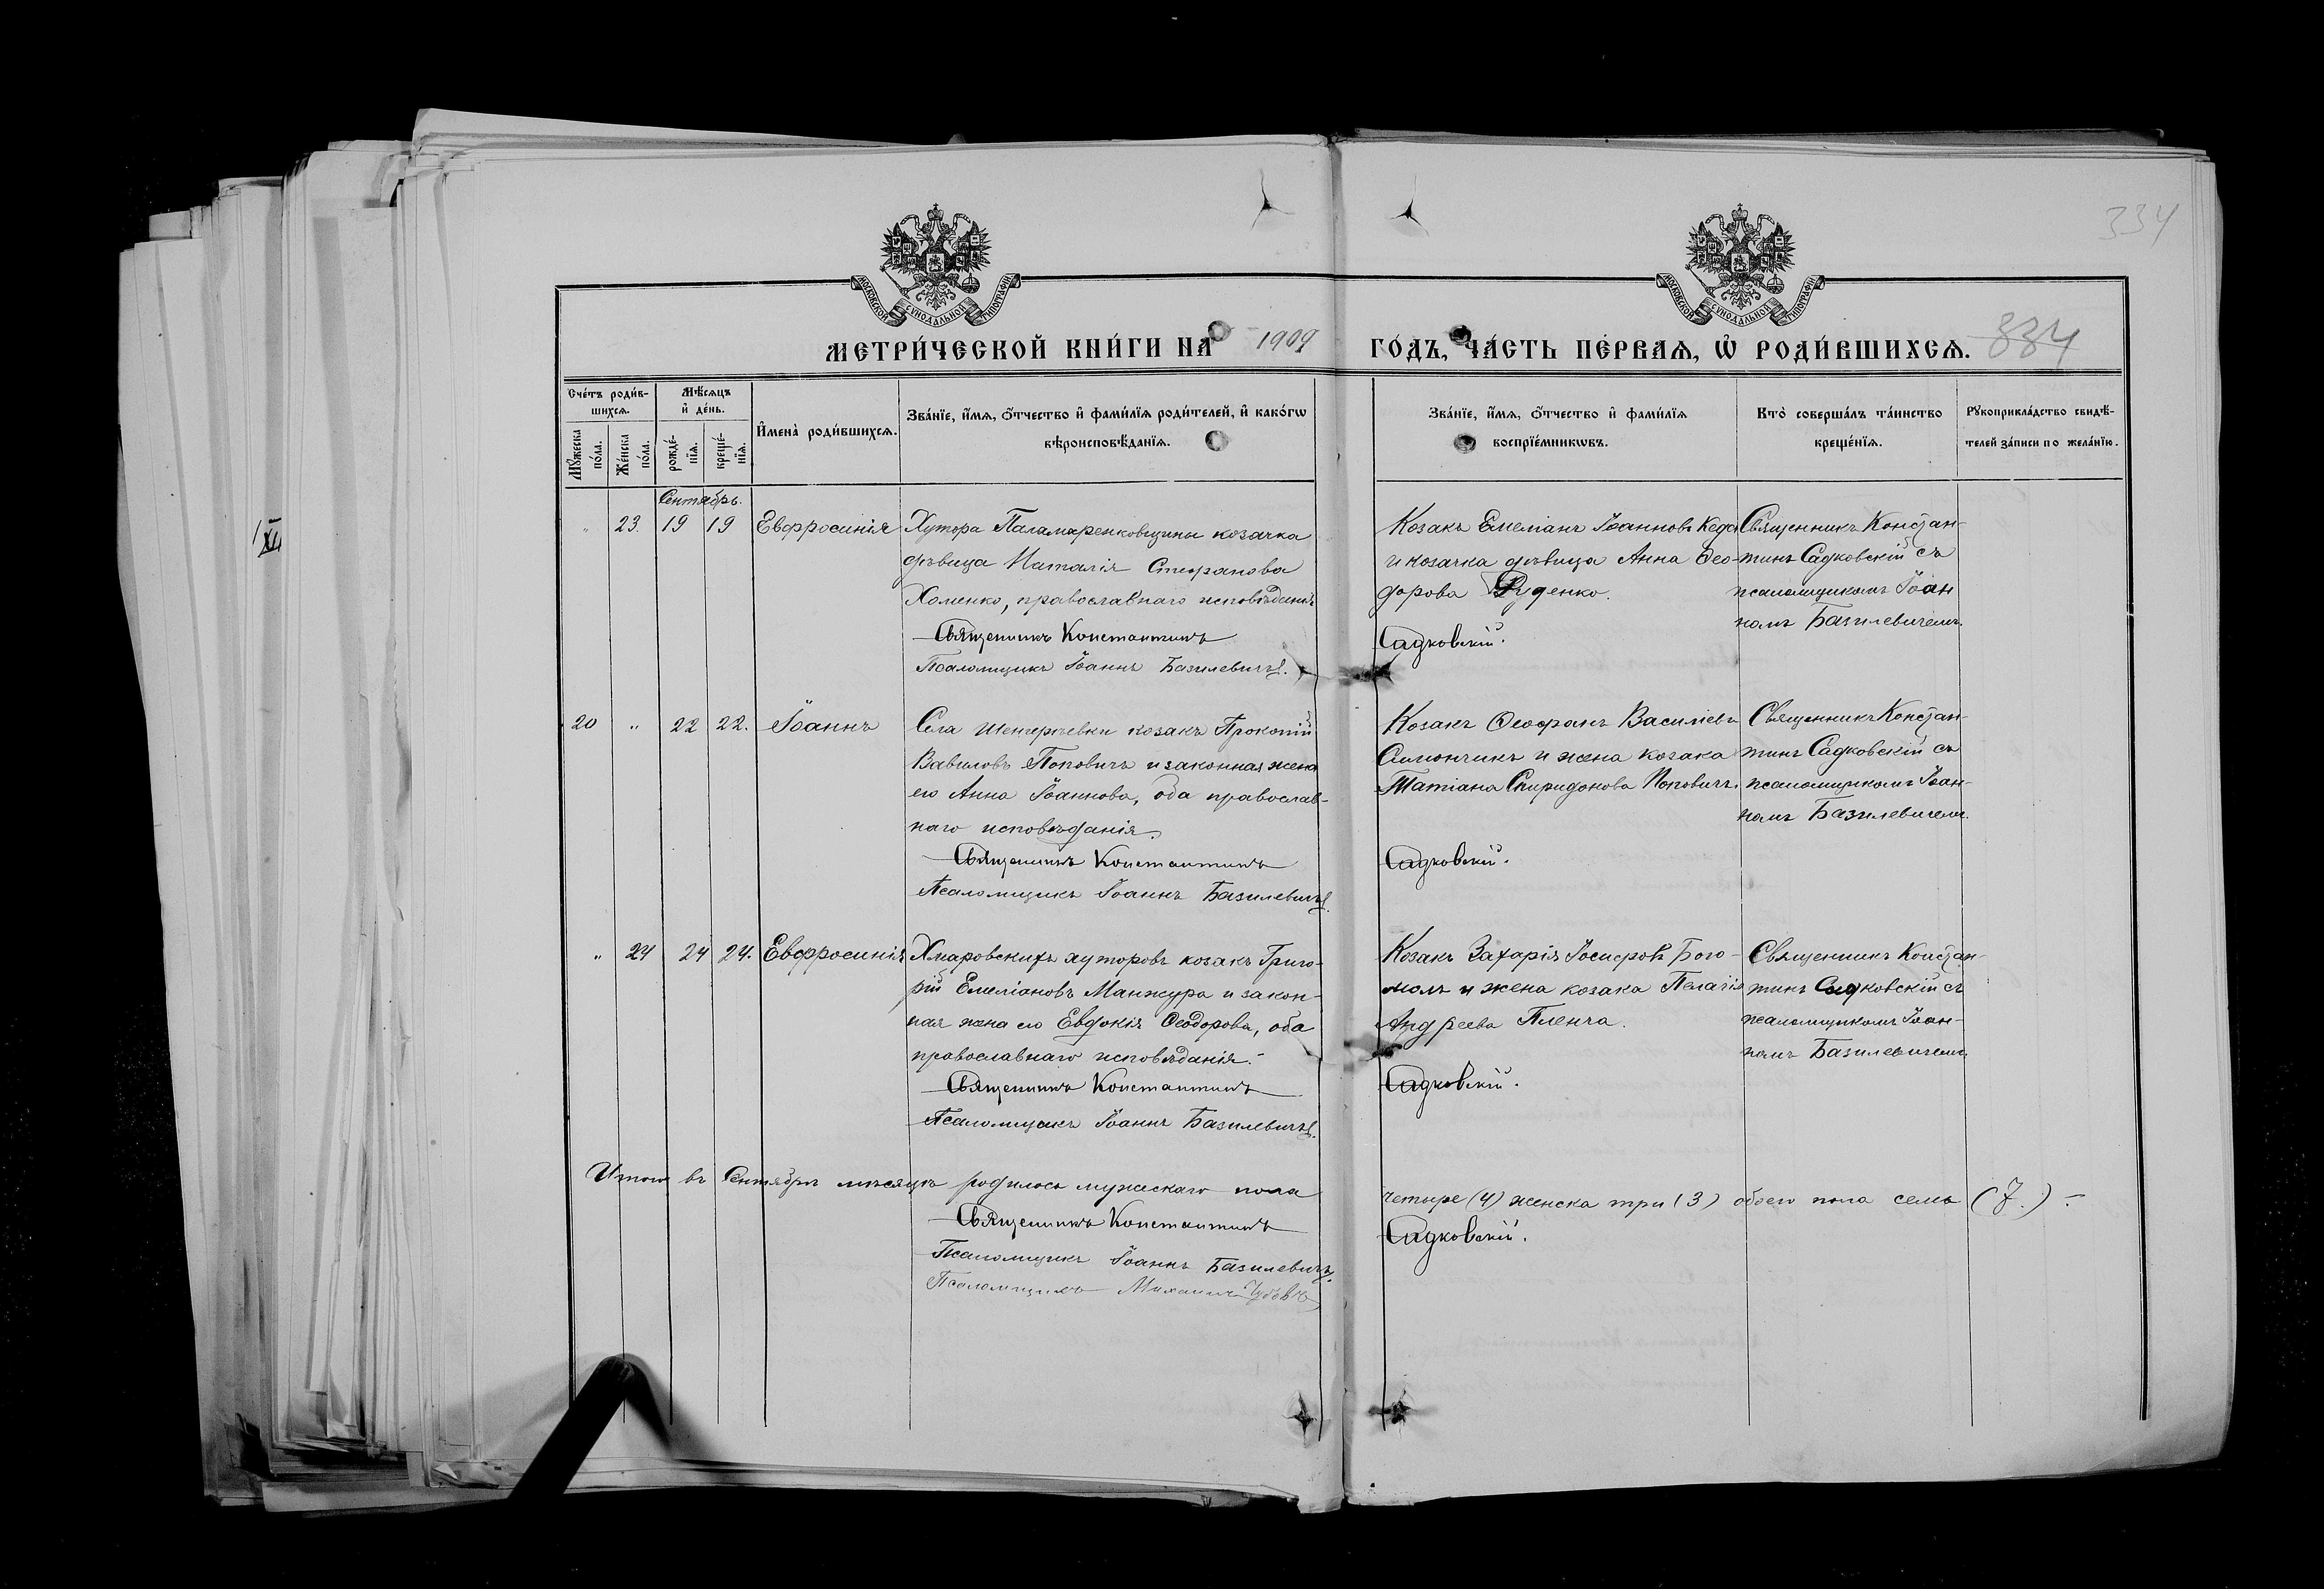 334
МОСКОВСКОЙ СУНОДАЛЬНОЙ ТИПОГРАФІИ
МОСКОВСКОЙ СУНОДАЛЬНОЙ ТИПОГРАФІИ
МЕТРИ́ЧЕСКОЙ КНИ́ГИ НА 1909 ГО́ДЪ, ЧА́СТЬ ПЕ́РВАѦ, Ѡ҆ РОДИ́ВШИХСѦ. 334
Сче́тъ роди́в-
шихсѧ.
Мѣ́сѧцъ
и҆ де́нь.
Мꙋ́жеска
по́ла.
Же́нска
по́ла.
рожде́-
нїѧ.
креще́-
нїѧ.
И҆мена̀ роди́вшихсѧ.
Зва́нїе, и҆́мѧ, ѻ҆́тчество и҆ фами́лїѧ роди́телей, и҆ како́гѡ
вѣроисповѣ́данїѧ.
Зва́нїе, и҆́мѧ, ѻ҆́тчество и҆ фами́лїѧ
воспрїе́мникѡвъ.
Кто̀ соверша́лъ та́инство
креще́нїѧ.
Рꙋкоприкла́дство свидѣ́-
телей за́писи по жела́нїю.
Сентябрь.
" 23. 19 19 Евфросинія
Хутора Паламаренковщины козачка
дѣвица Наталія Стефанова
Хоменко, православнаго исповѣданія
Священникъ Константинъ
Псаломщикъ Іоаннъ Базилевичъ.
Козакъ Емеліанъ Іоанновъ
и козачка дѣвица Анна Ѳео-
дорова Руденко.
Садковскій.
Священникъ Констан-
тинъ Садковскій съ
псаломщикомъ Іоан
номъ Базилевичемъ.
20 " 22 22. Іоаннъ
Села козакъ Прокопій
Вавиловъ Поповичъ и законная жена
его Анна Іоаннова, оба православ-
наго исповѣданія.
Священникъ Константинъ
Псаломщикъ Іоаннъ Базилевичъ.
Козакъ Ѳеофанъ Василіевъ
Симончикъ и жена козака
Татіана Спиридонова Поповичъ.
Садковскій.
Священникъ Констан-
тинъ Садковскій съ
псаломщикомъ Іоан-
номъ Базилевичемъ.
" 24 24 24. Евфросинія
Хмаровскихъ хуторовъ козакъ Григо-
рій Емеліановъ Манжура и закон-
ная жена его Евдокія Ѳеодорова, оба
православнаго исповѣданія.-
Священникъ Константинъ
Псаломщикъ Іоаннъ Базилевичъ.
Козакъ Захарія Іосифовъ Бого-
молъ и жена козака Пелагія
Андреева Пленча.
Садковскій.
Священникъ Констан-
тинъ Садковскій съ
псаломщикомъ Іоан-
номъ Базилевичемъ.
Итого въ Сентябрѣ мѣсяцѣ родилось мужескаго пола четыре (4) женска три (3) обоего пола семь (7.) -
Священникъ Константинъ Садковскій.
Псаломщикъ Іоаннъ Базилевичъ.
Псаломщикъ Михаилъ